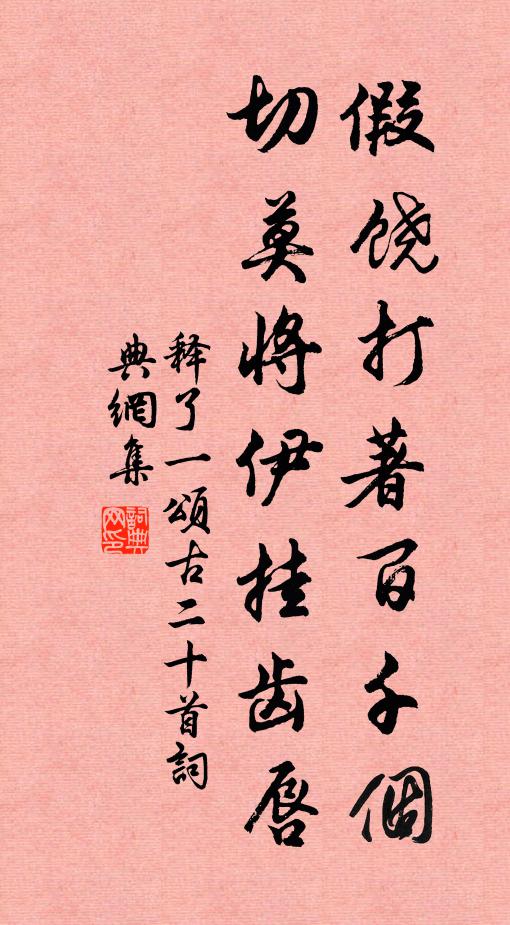 假饶打著百千個
切莫將伊挂齿唇
释了一頌古二十首詞
典網集
詞典網印